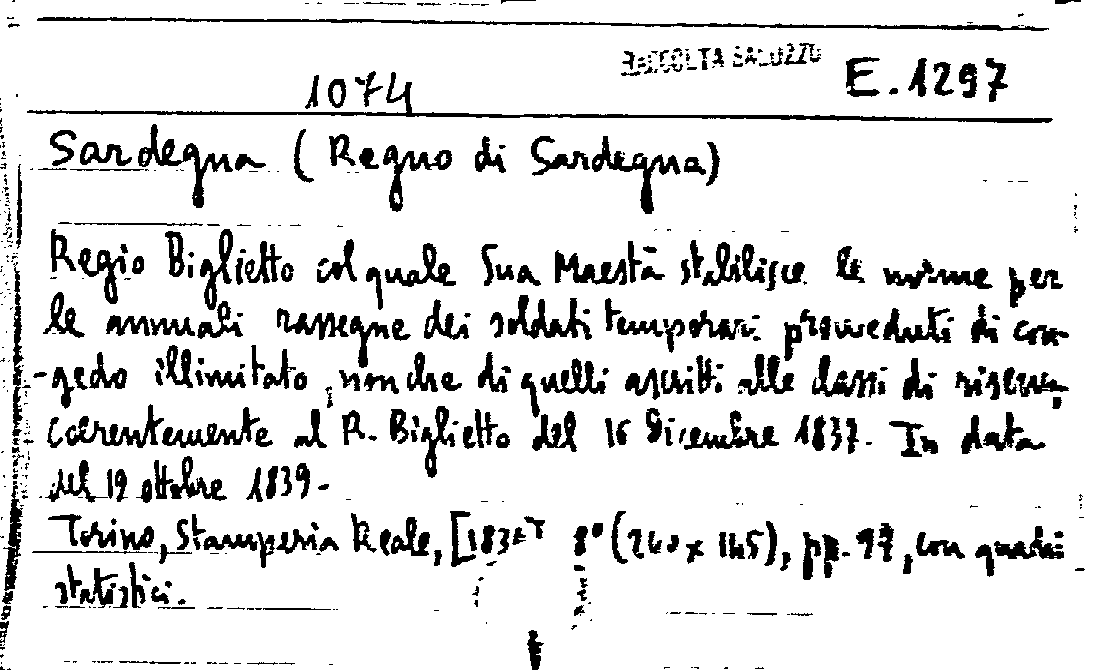 RACCOLTA SALUZZO
1074 E.1297
Sardegna (Regno di Sardegna)
Regio Biglietto col quale Sua Maestà stabilisce le norme per
le annuali rassegne dei soldati temporari proweduti di con-
-gedo illimitato, nonche di quelli ascritti alle classi di riserva,
coerentemente al R. Biglietto del 16 Dicembre 1837. In data
del 19 ottobre 1839-
Torino, Stamperia Reale, 8° (240 x 145), pp. 97, con quadri
statistici.